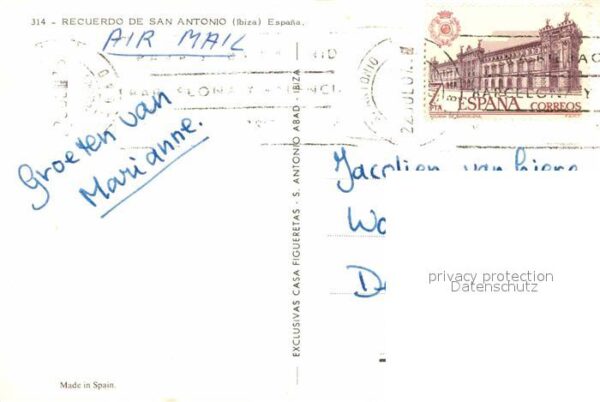 314 - RECUERDO DE SAN ANTONIO (Ibiza) España.
AIR MAIL
Groeten van
Marianne.
Made in Spain.
EXCLUSIVAS CASA FIGUERETAS - S. ANTONIO ABAD - IBIZA
7
PTA
ESPAÑA
CORREOS
BARCELONA Y
22 JUL
Jacolien van
privacy protection
Datenschutz